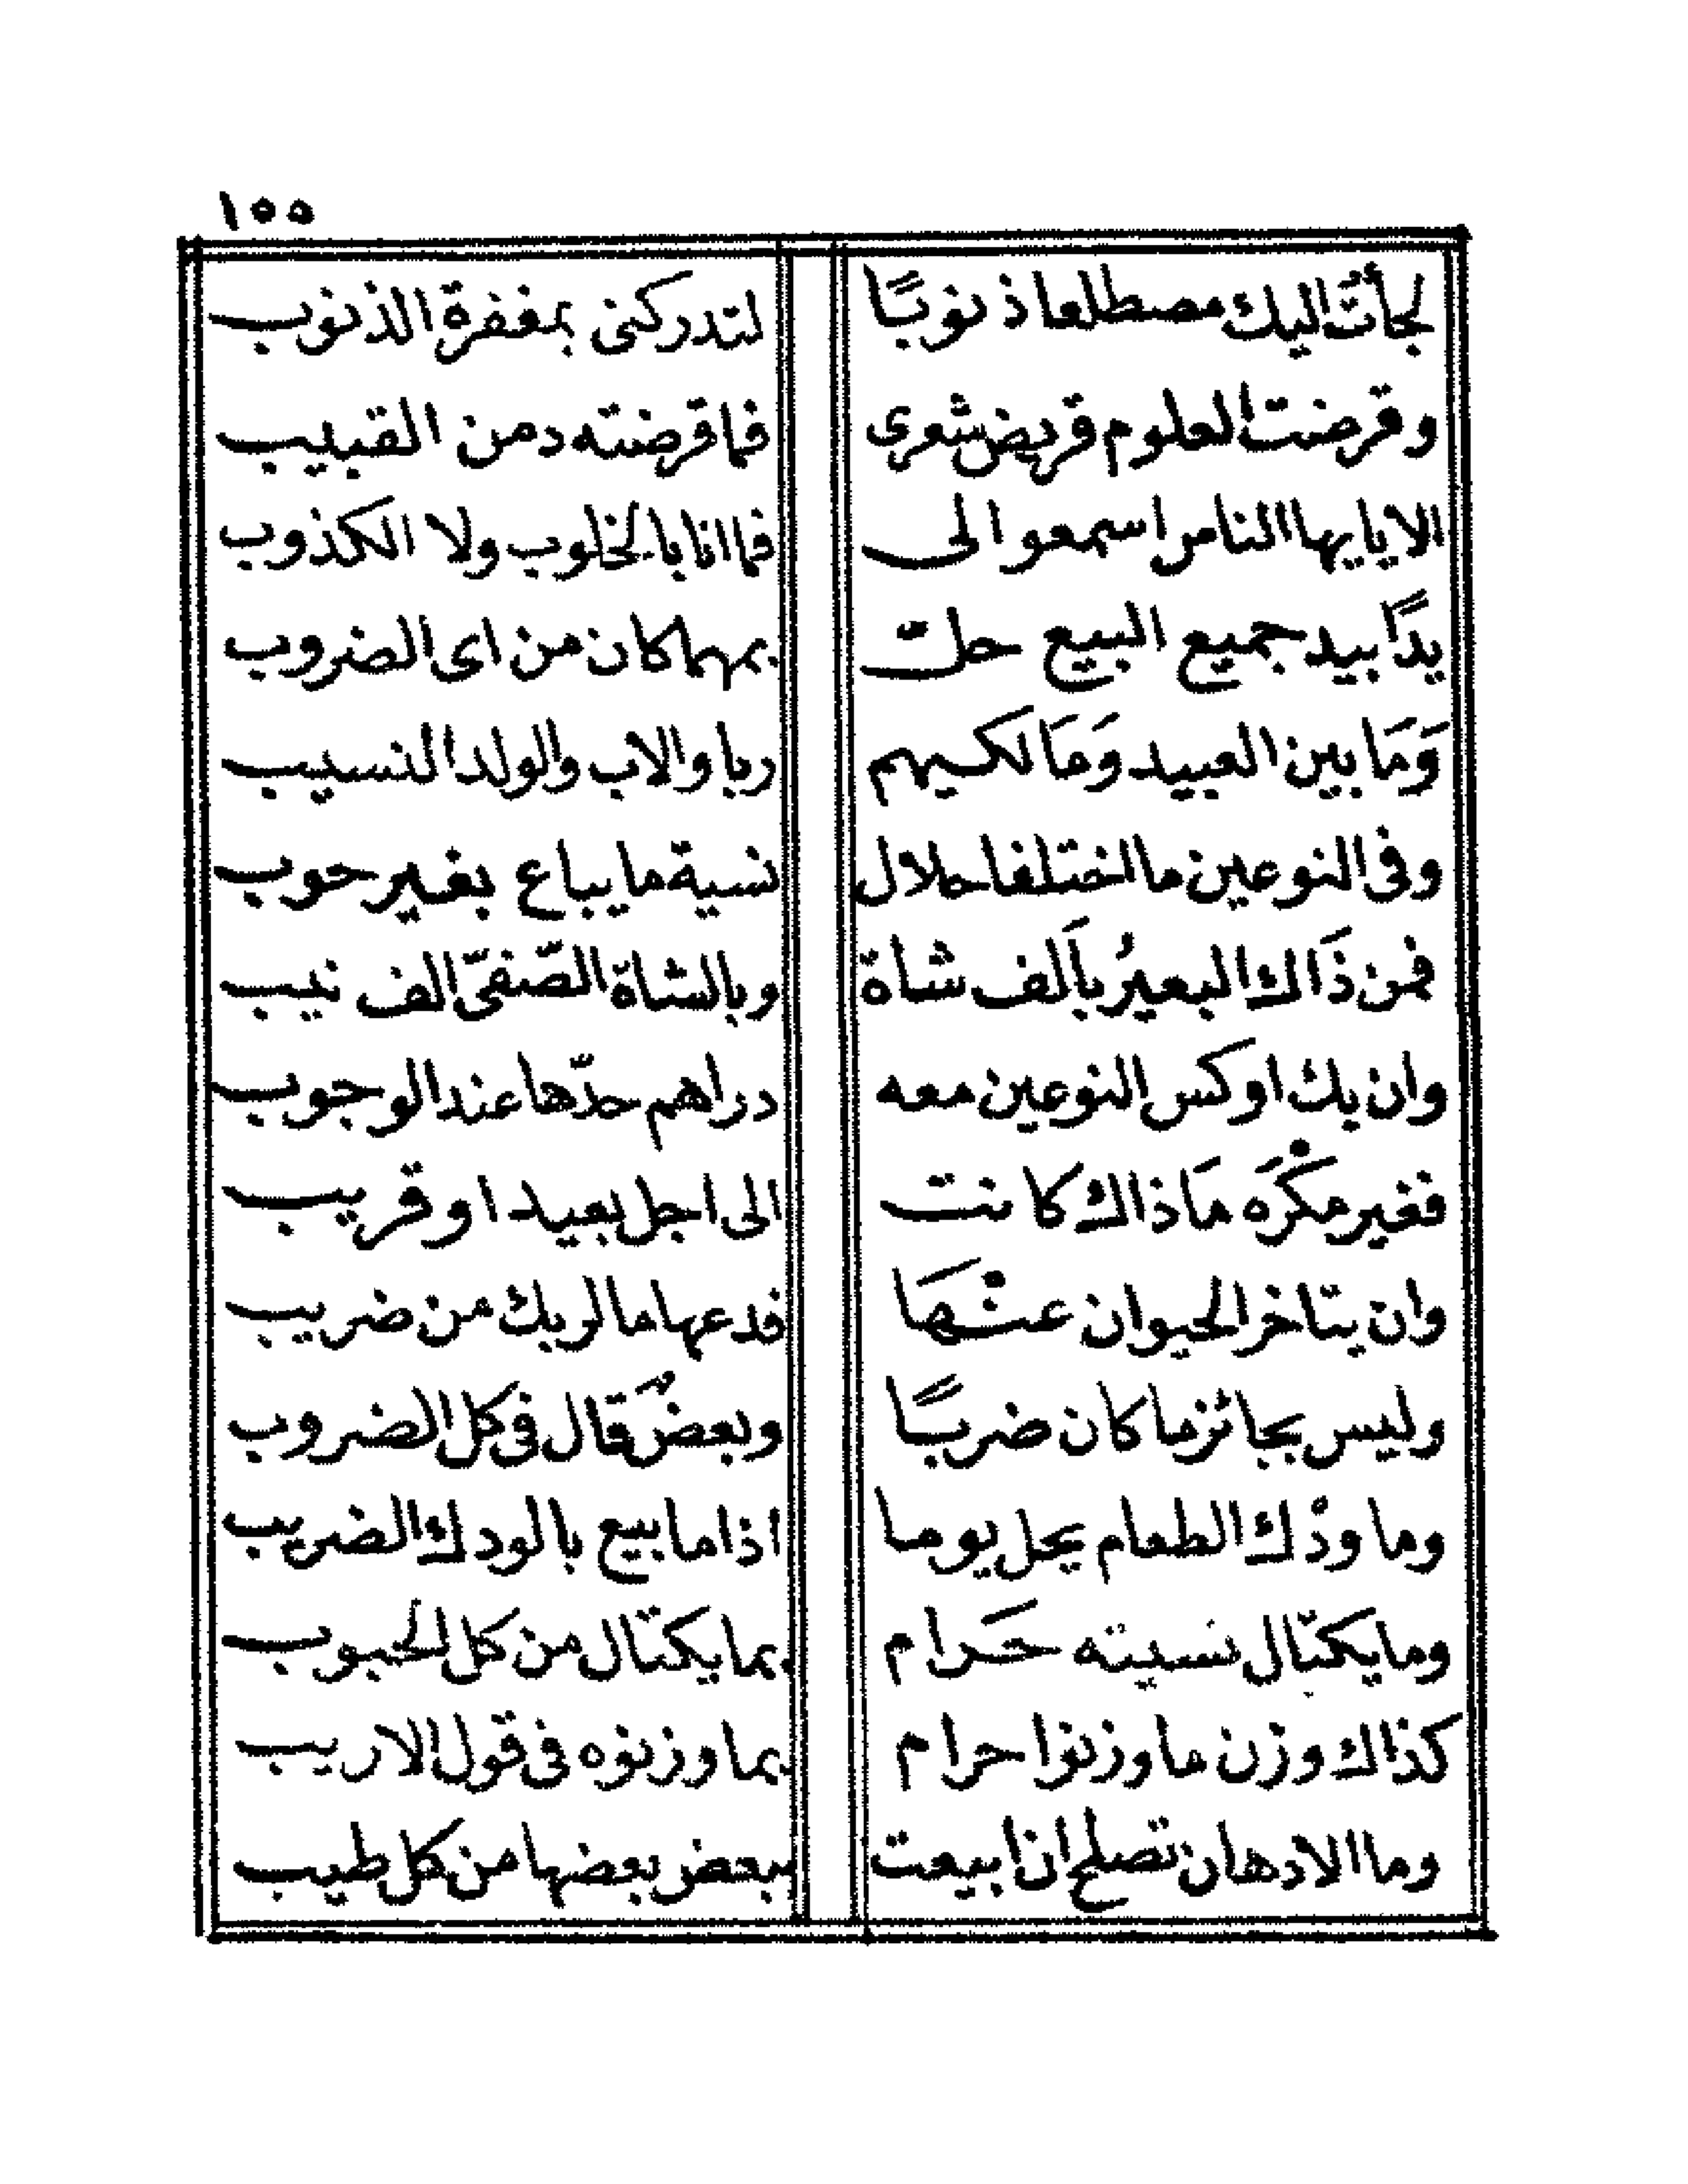 ١٥٥
لجأتُ اليك مصطلعا ذنوبًا لتدركنى بمغفرة الذنوب
وقرضت العلوم قريض شعرى فما قرضته دمن القبليب
الا يايها الناس اسمعوا لى فما انا بالخلوب ولا الكذوب
يدًا بيد جميع البيع حل بمهما كان من اى الضروب
وَمَا بين العبيد وَمَا لكيهم ربا والاب والولد النسيب
وفى النوعين ما اختلفا حلال نسية ما يباع بغير حوب
فمن ذَاك البعيرُ بأَلف شاة وبالشاة الصّفىّ الف نيب
وان يك اوكس النوعين معه دراهم حدّها عند الوجوب
فغير مكْرَه مَا ذاك كانت الى اجل بعيد او قريب
وان يتاخر الحيوان عنْهَا فدعها ما لربك من ضريب
وليس بجائز ما كان ضربًا وبعضٌ قال فى كل الضروب
وما ودك الطعام يحل يوما اذا ما بيع بالودك الضريب
وما يكتال نسيته حَرام بما يكتال من كل الحبوب
كذاك وزن ما وزنوا حرام بما وزنوه فى قول الاريب
وما الادهان تصلح ان ابيعت ببعض بعضها من كل طيب